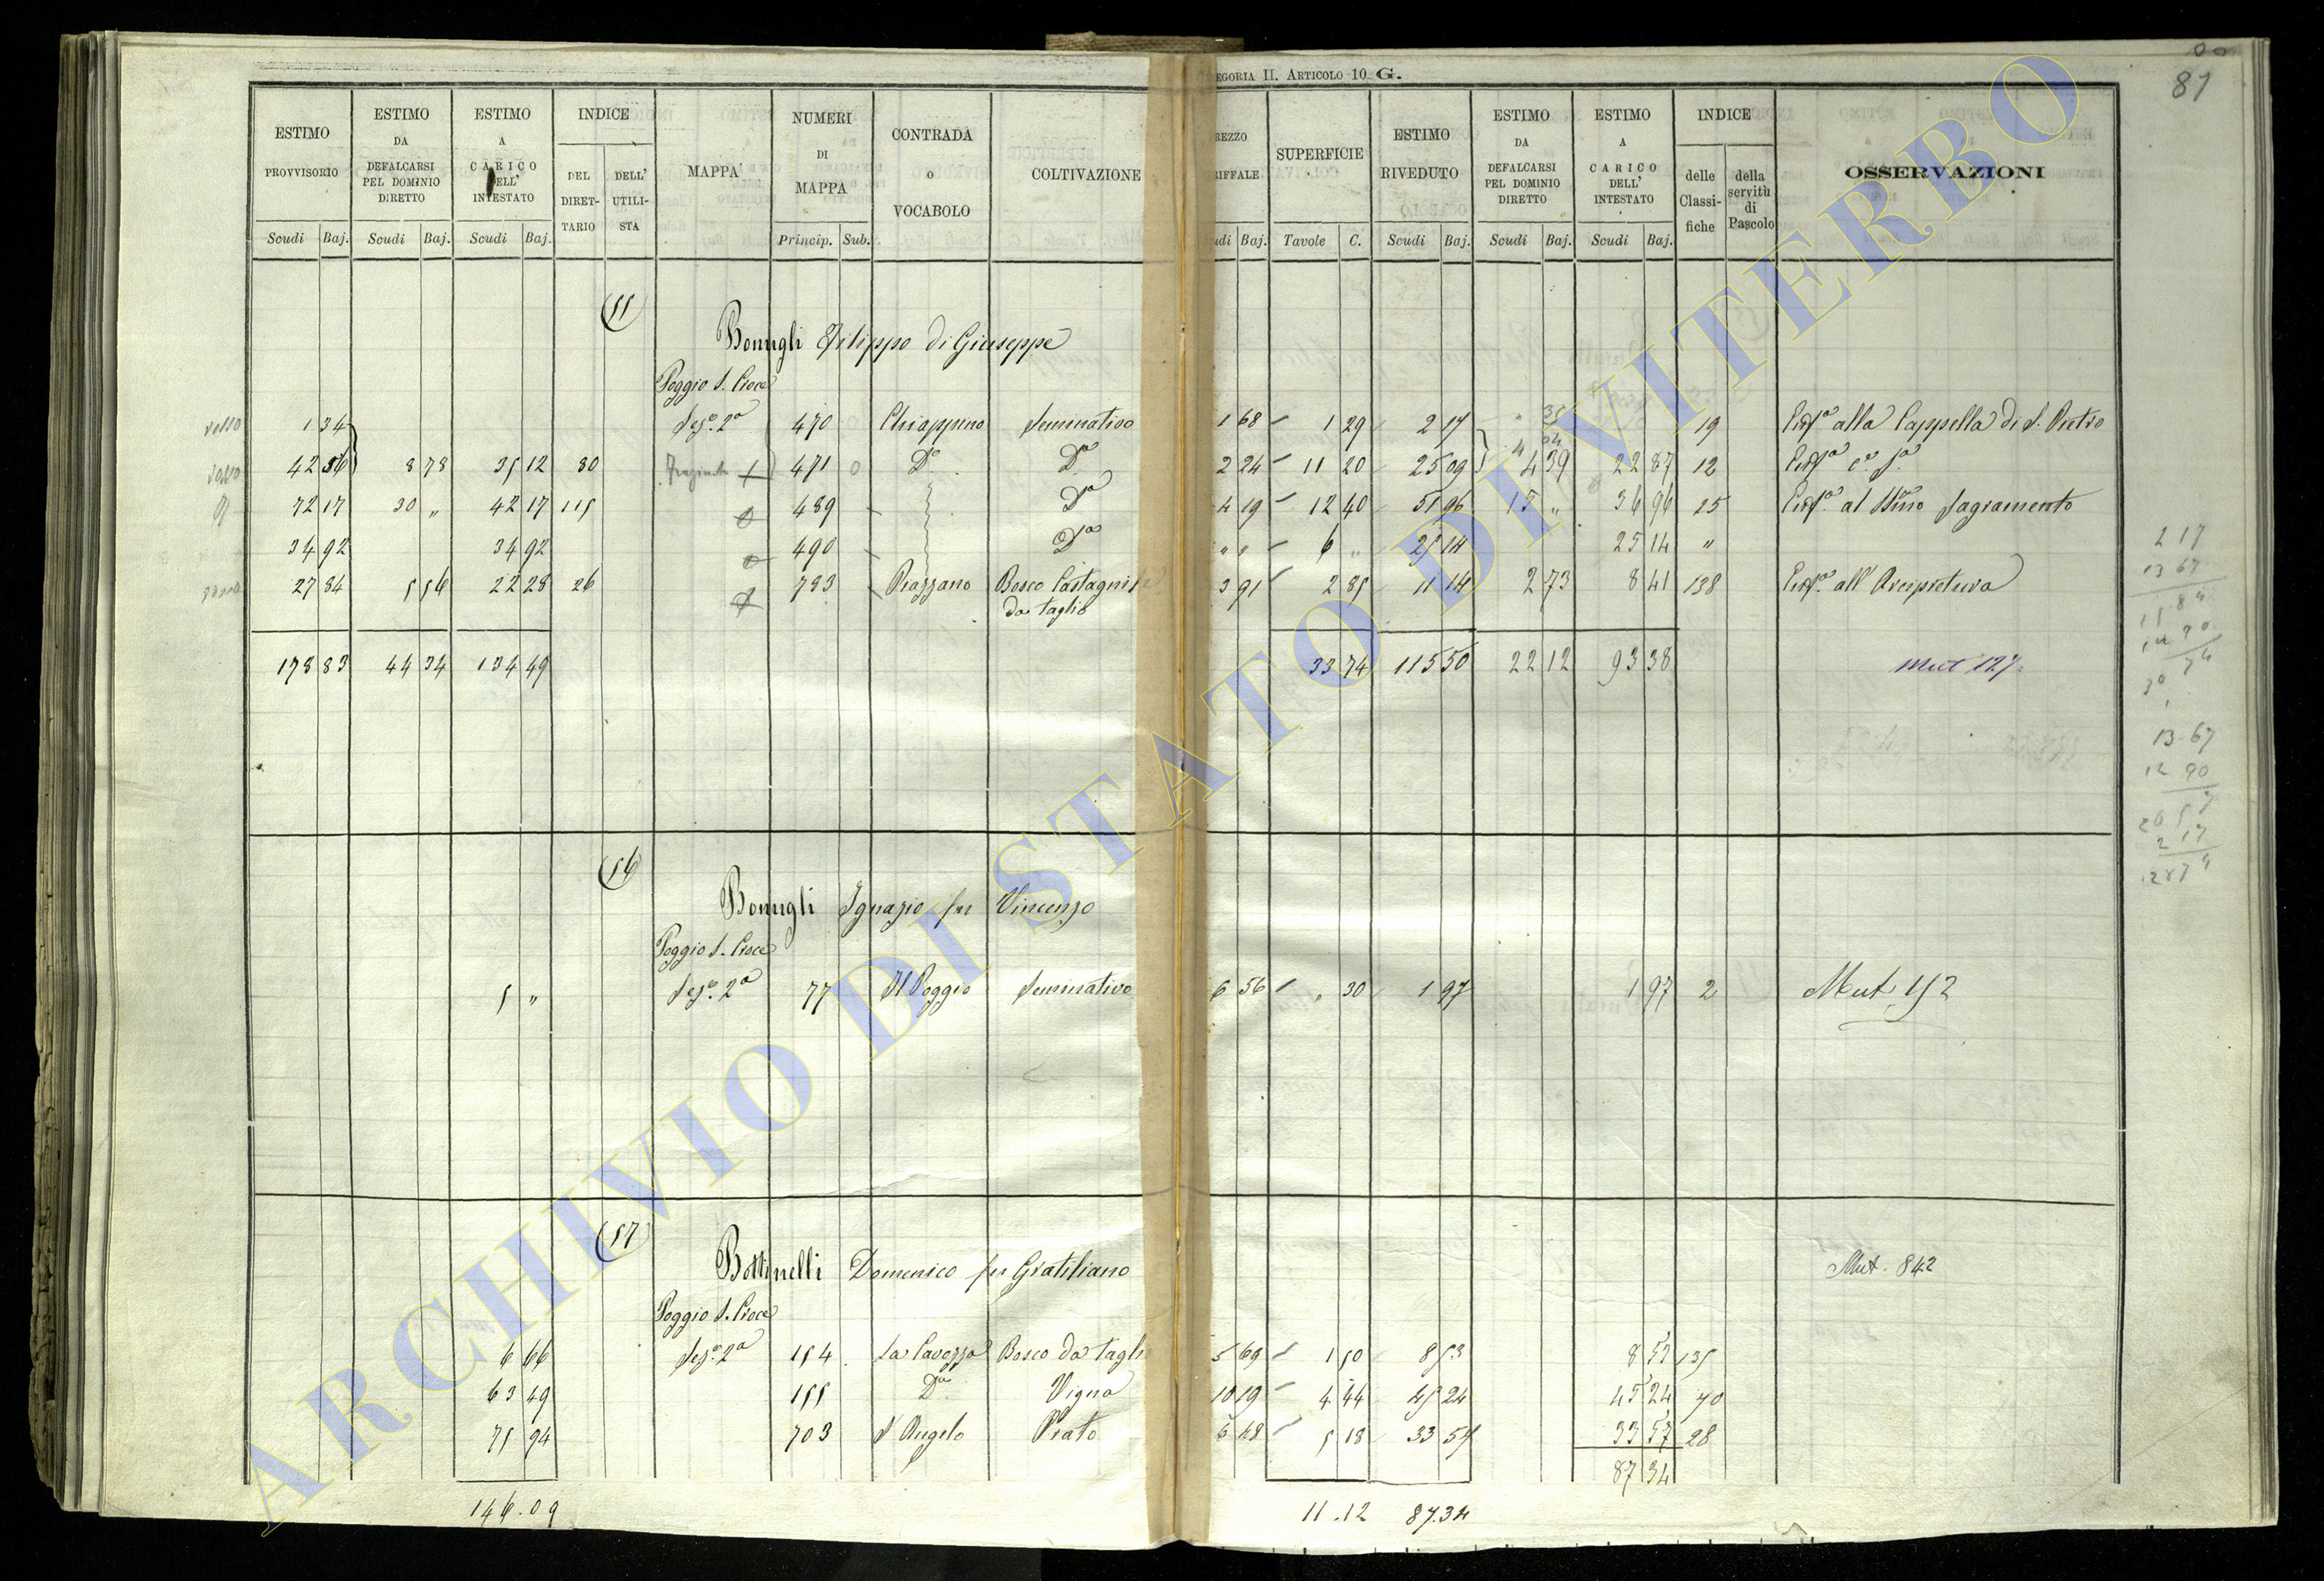 EGORIA II. ARTICOLO 10 G.
81
ESTIMO PROVVISORIO
ESTIMO DA DEFALCARSI PEL DOMINIO DIRETTO
ESTIMO A CARICO DELL' INTESTATO
INDICE
DEL DIRET-TARIO
DELL' UTILI-STA
MAPPA
NUMERI DI MAPPA
CONTRADA o VOCABOLO
COLTIVAZIONE
REZZO RIFFALE
SUPERFICIE
ESTIMO RIVEDUTO
ESTIMO DA DEFALCARSI PEL DOMINIO DIRETTO
ESTIMO A CARICO DELL' INTESTATO
INDICE
delle Classi-fiche
della servitù di Pascolo
OSSERVAZIONI
Scudi Baj. Scudi Baj. Scudi Baj. Princip. Sub. udi Baj. Tavole C. Scudi Baj. Scudi Baj. Scudi Baj.
Bonugli Filippo di Giuseppe
Poggio S. Croce
1 34 Sezº. 2ª 470 Chiappino Seminativo 1 68 1 29 2 17 19 alla Cappella di S. Pietro
42 56 8 78 35 12 80 471 Dº Dº 2 24 11 20 25 09 4 39 22 87 12
72 17 30 " 42 17 115 489 Dº 4 19 12 40 51 96 15 " 36 96 25 al Sagramento
34 92 34 92 490 Dº " " 6 " 25 14 25 14 "
27 84 5 56 22 28 26 783 Piazzano Bosco Castagnile 3 91 2 85 11 14 2 73 8 41 138 all' Arcipretura
da taglio
178 83 44 34 134 49 33 74 115 50 22 12 93 38 Mut 127
2 17
13 67
13 67
12 90
2 17
(56)
Bonugli Ignazio fu Vincenzo
Poggio S. Croce
5 " Sezº. 2ª 77 Il Poggio Seminativo 6 56 " 30 1 97 1 97 2 Mut 152
(57)
Bottinelli Domenico fu Gratiliano
Mut. 842
Poggio S. Croce
6 66 Sezº. 2ª 154 La Cavozza Bosco da tagli 5 69 1 50 8 53 8 53 135
63 49 155 Dº Vigna 10 19 4 44 45 24 45 24 70
75 94 703 S. Angelo Prato 6 48 5 18 33 57 33 57 28
87 34
146.09 11.12 87.34
ARCHIVIO DI STATO DI VITERBO